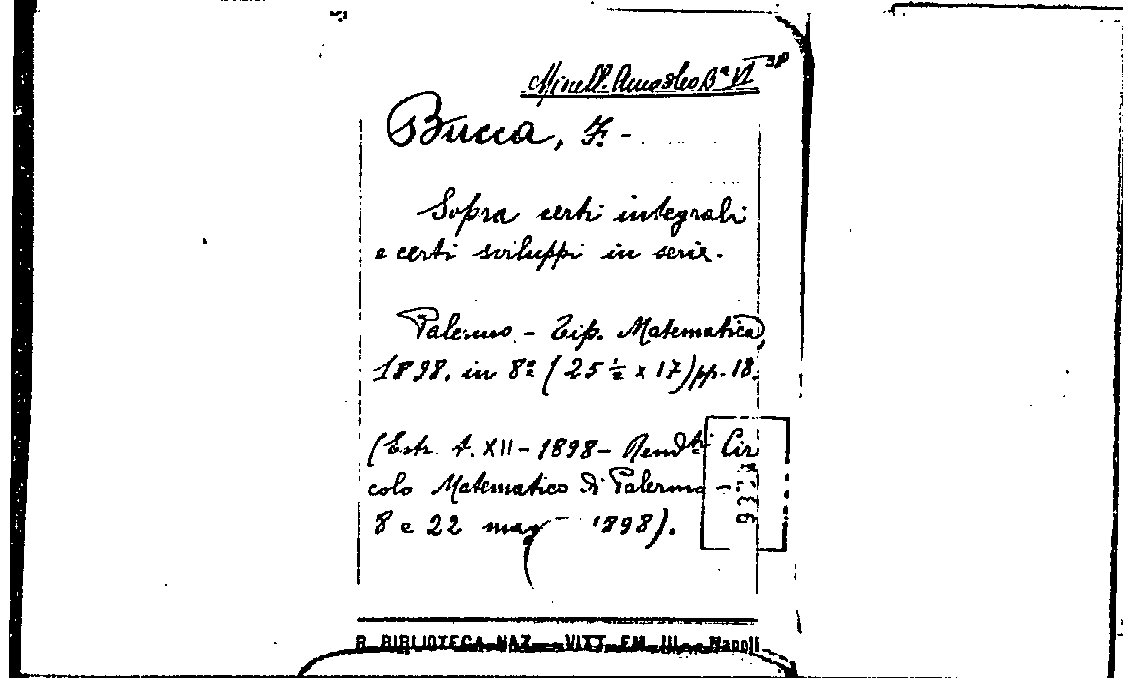 Miscell. Amodeo Bª VI 38
Bucca, F. -
Sopra certi integrali
e certi sviluppi in serie.
Palermo - Tip. Matematica,
1898. in 8º (25 ½ x 17) pp. 18.
(Estr. t. XII - 1898 - Rendti Cir
colo Matematico di Palermo -
8 e 22 mag 1898).
R. BIBLIOTECA NAZ. VITT. EM. III - Napoli